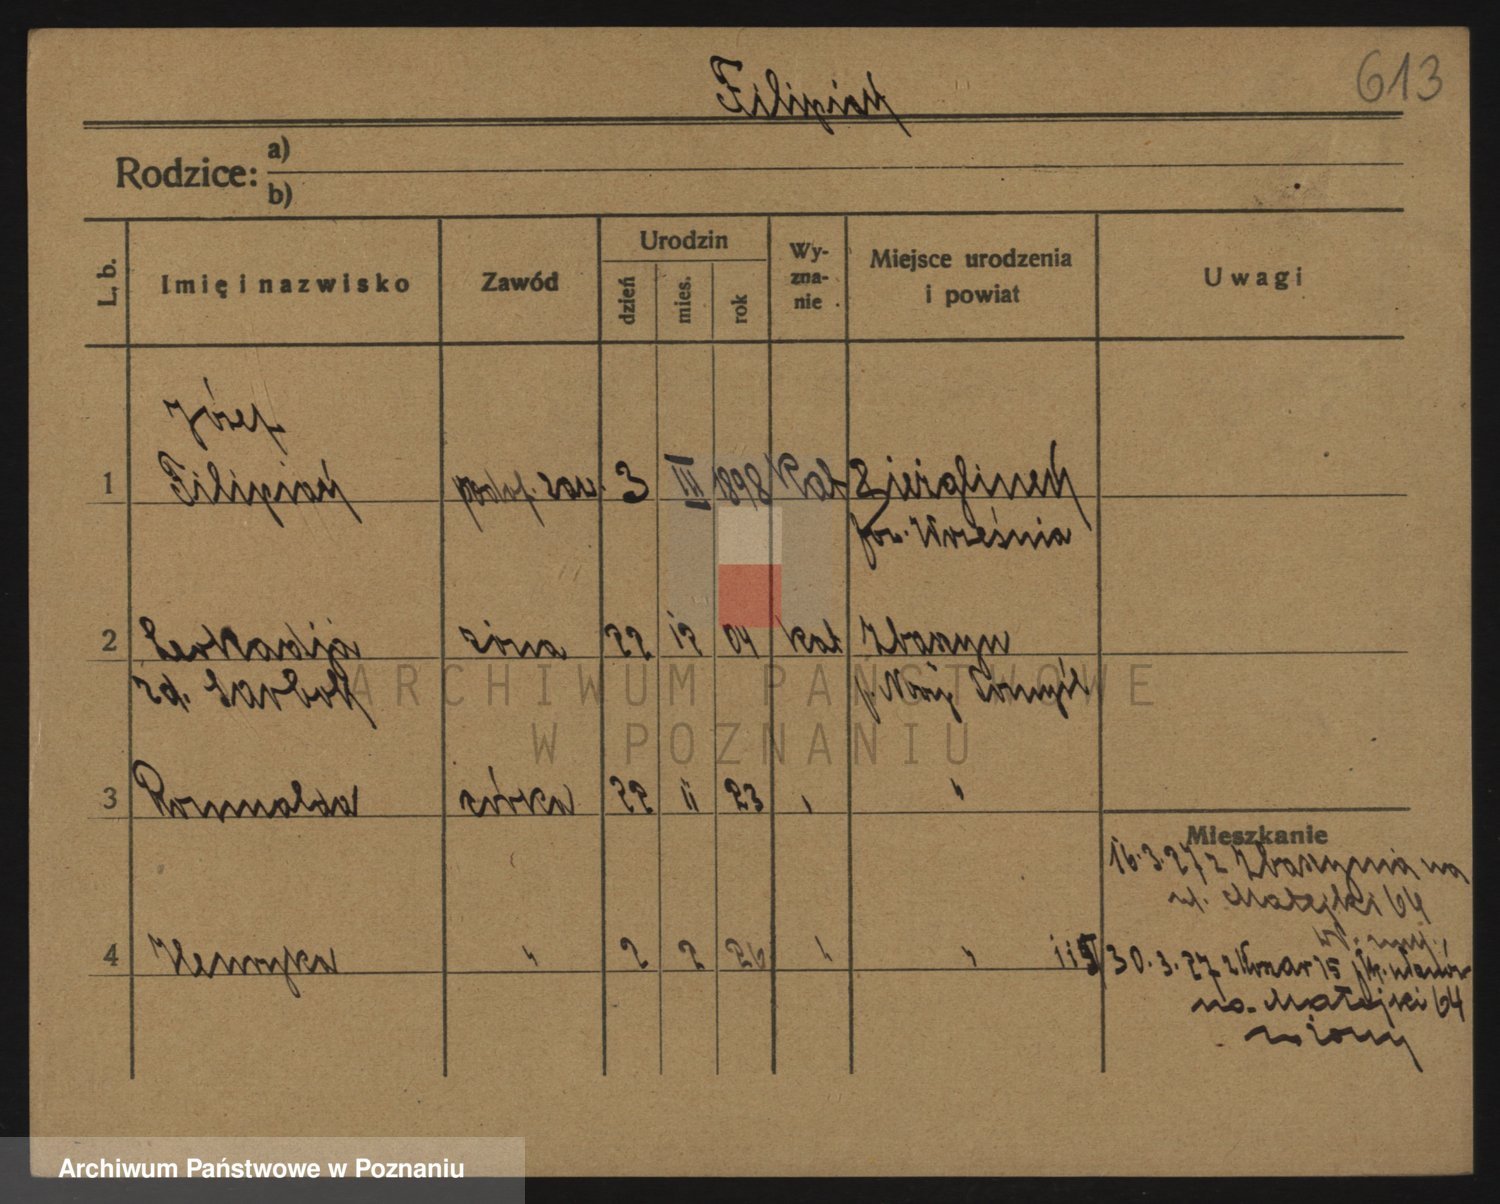 Filipiak
613
Rodzice: a)
b)
L. b.
Imię i nazwisko
Zawód
Urodzin
dzień
mies.
rok
Wy-
zna-
nie
Miejsce urodzenia
i powiat
Uwagi
Józef
1 Filipiak podof. zaw. 3 III 1898 Kat
pow. Września
2 Leokadja córka 22 12 04 kat Zbąszyń
zd. p. Nowy Tomyśl
3 Romualda córka 22 11 23 " "
Mieszkanie
16.3.27 z Zbąszynia na
ul. Matejki 64
4 Henryka " 2 2 26 " "
30.3.27 z 15
na Matejki 64
żony
ARCHIWUM PAŃSTWOWE
W POZNANIU
Archiwum Państwowe w Poznaniu